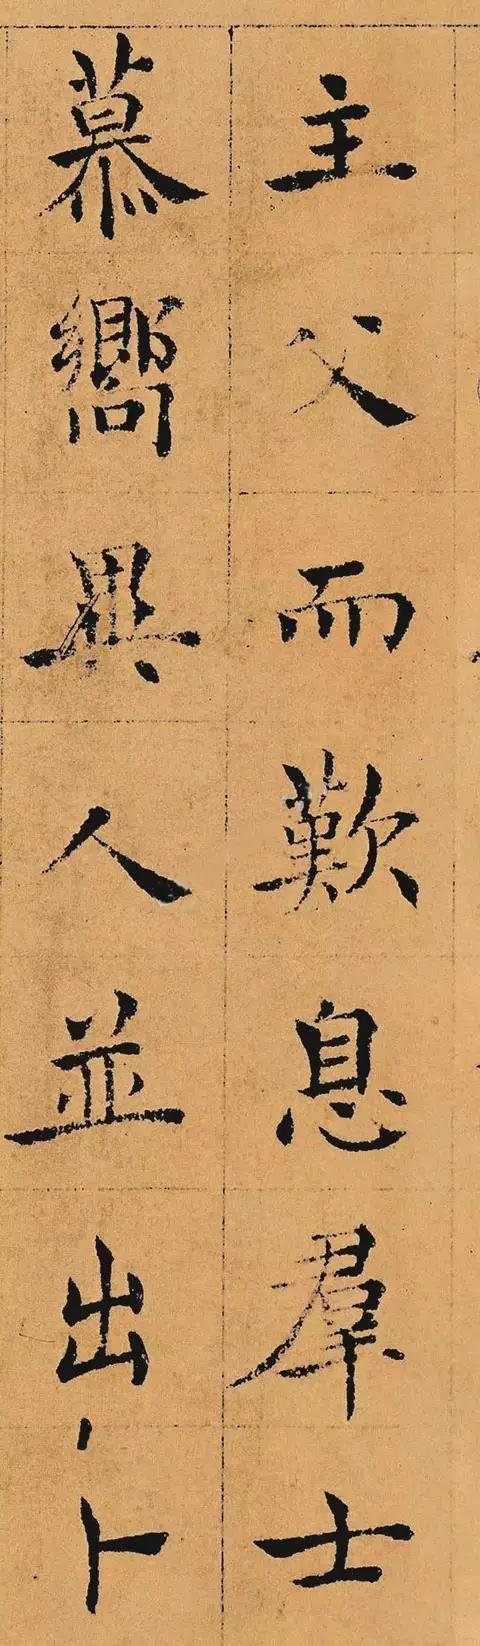 主父而歎息羣士
慕嚮異人並出卜